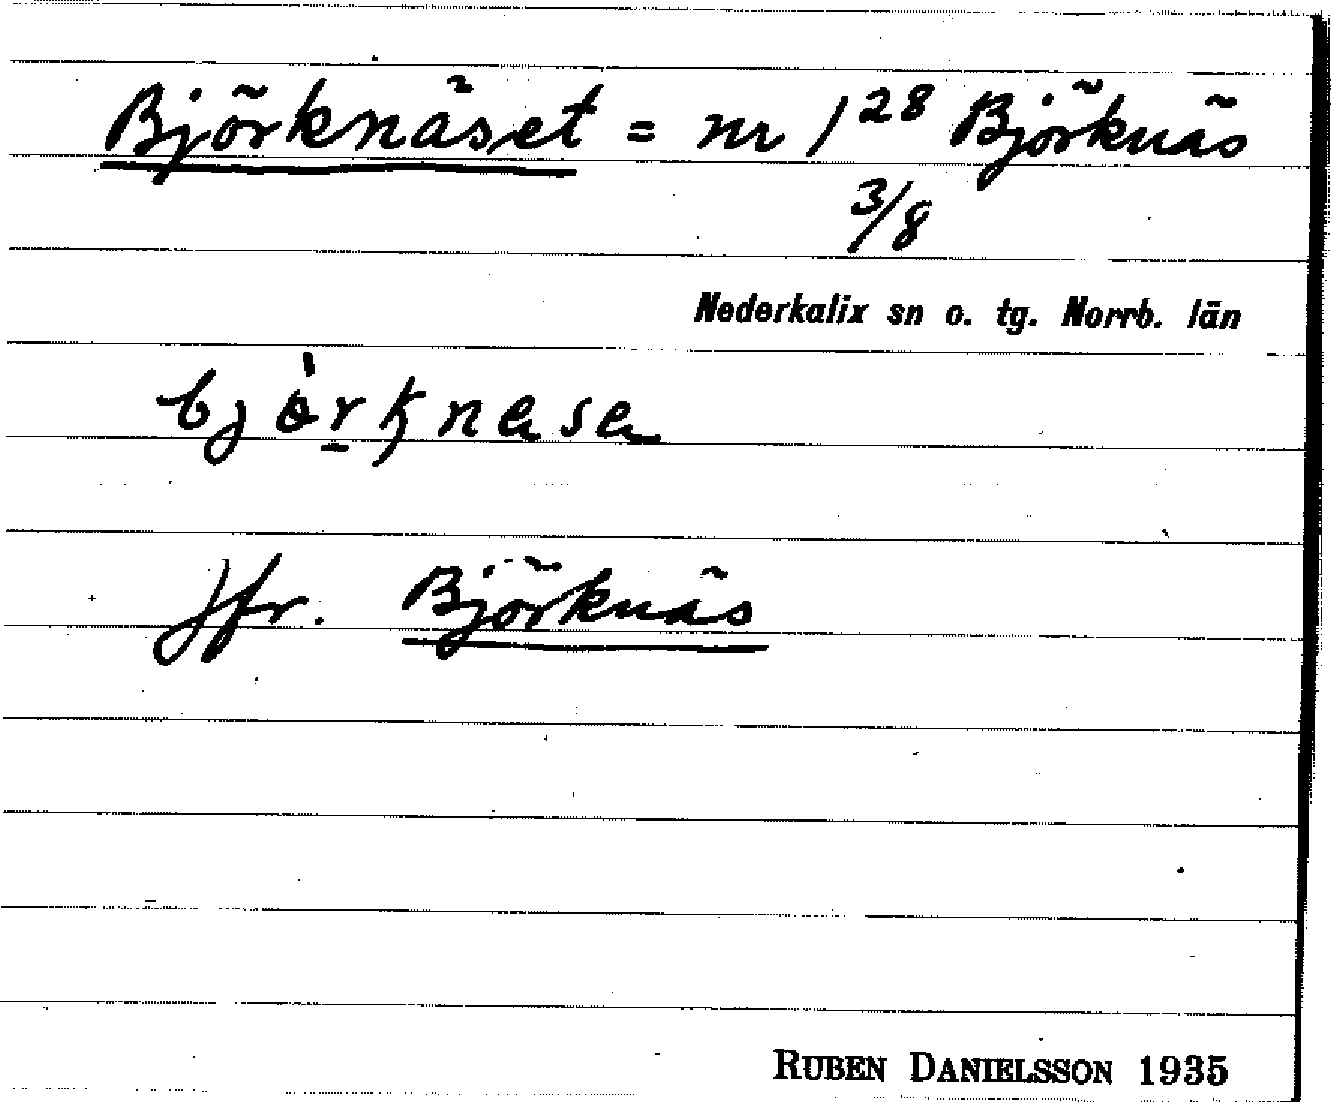 Björknäset = nr 1²⁸ Björknäs
3/8
Nederkalix sn o. tg. Norrb. län
Jfr. Björknäs
RUBEN DANIELSSON 1935